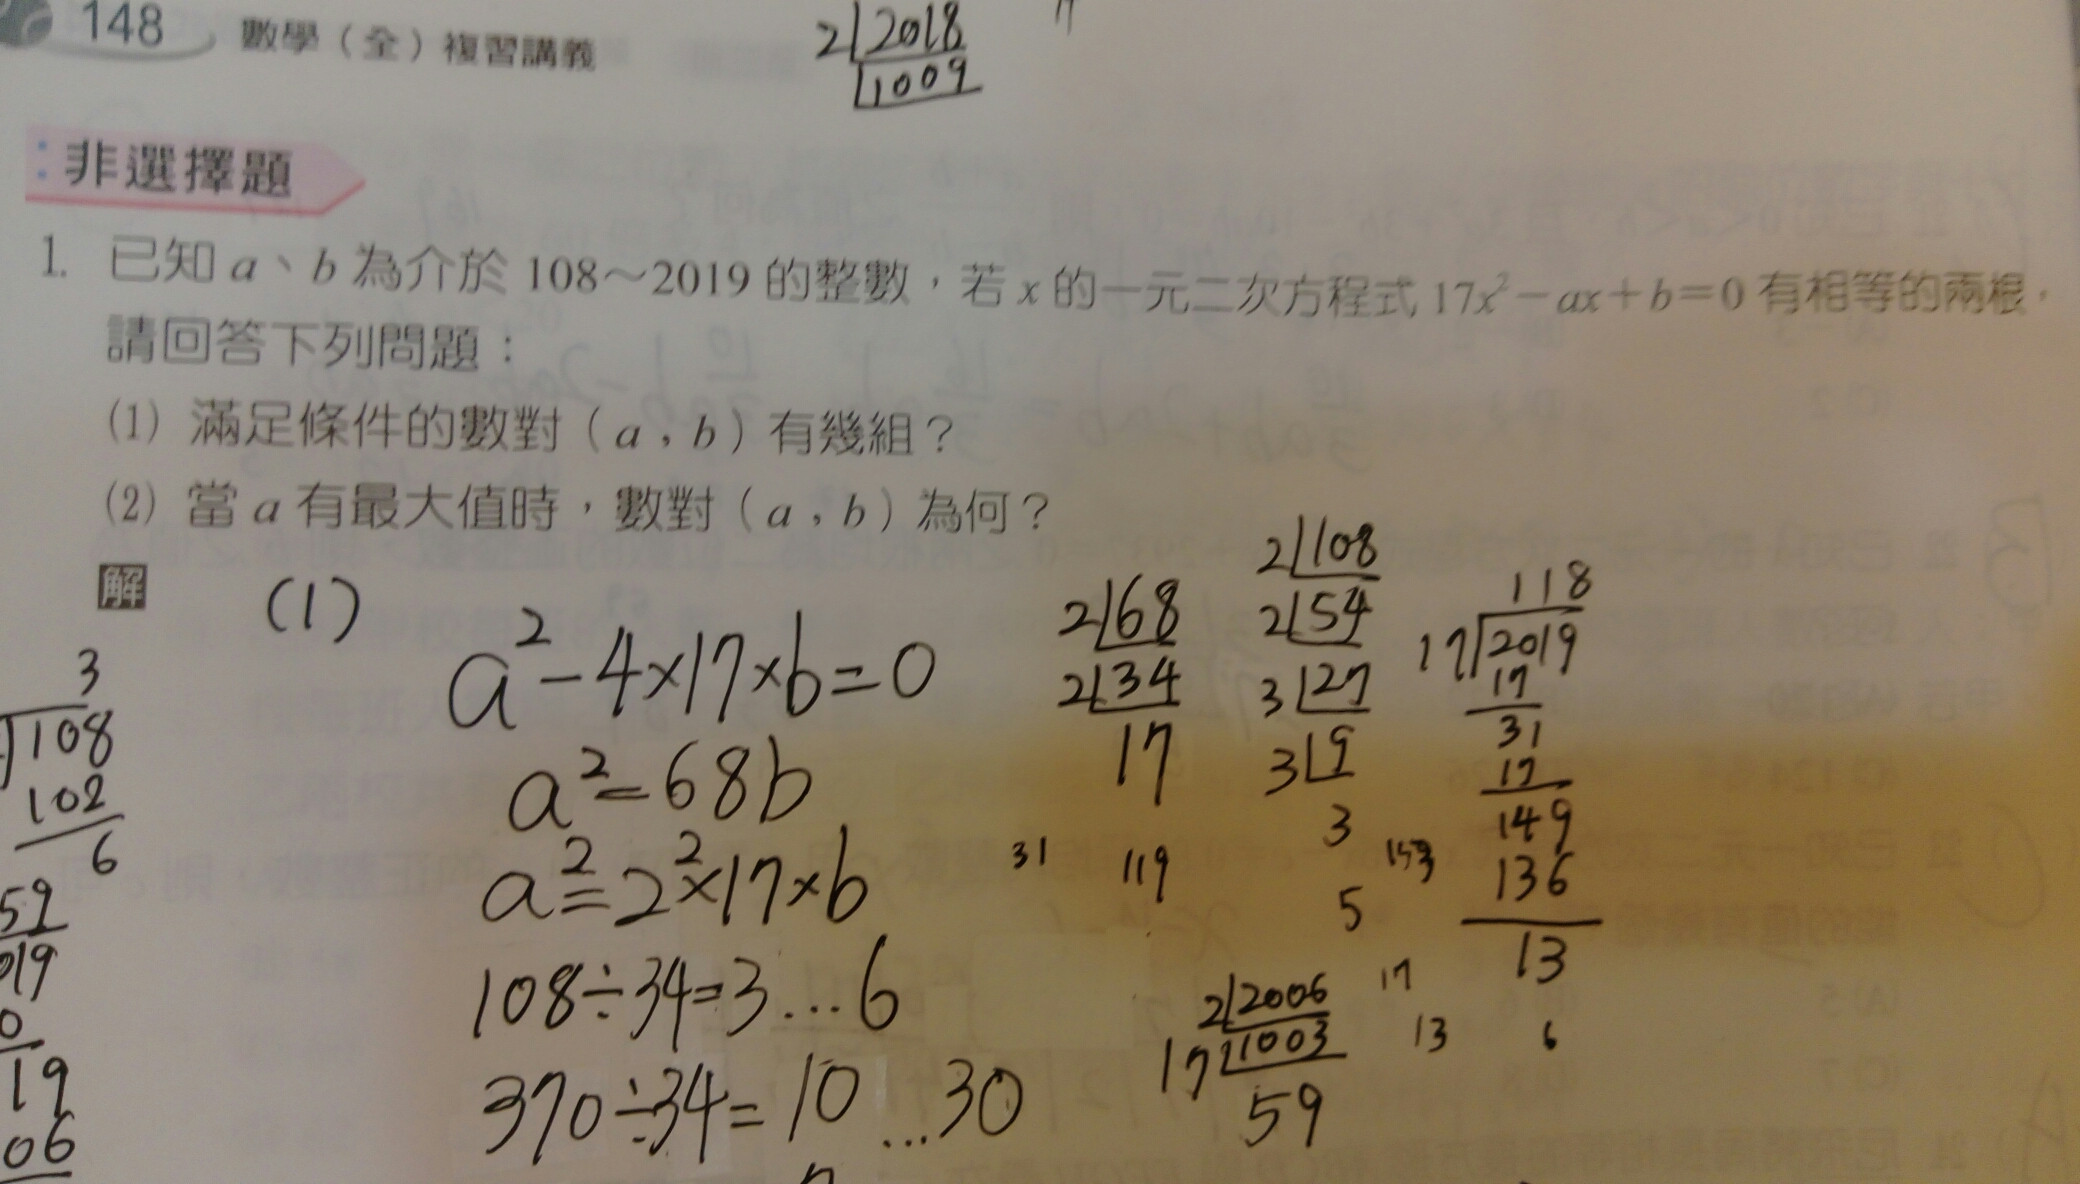 148 數學（全）複習講義
2 2018
1009
非選擇題
1. 已知 a、b 為介於 108～2019 的整數，若 x 的一元二次方程式 17x²－ax＋b＝0 有相等的兩根，
請回答下列問題：
(1) 滿足條件的數對（a，b）有幾組？
(2) 當 a 有最大值時，數對（a，b）為何？
解
(1)
a²－4×17×b＝0
a²＝68b
a²＝2²×17×b
108÷34＝3…6
370÷34＝10…30
3
108
102
6
59
019
0
19
06
2 68
2 34
17
31
119
2 108
2 54
3 27
3 9
3
5
153
118
17 2019
17
31
17
149
136
13
2 2006
17 1003
59
17
13
6